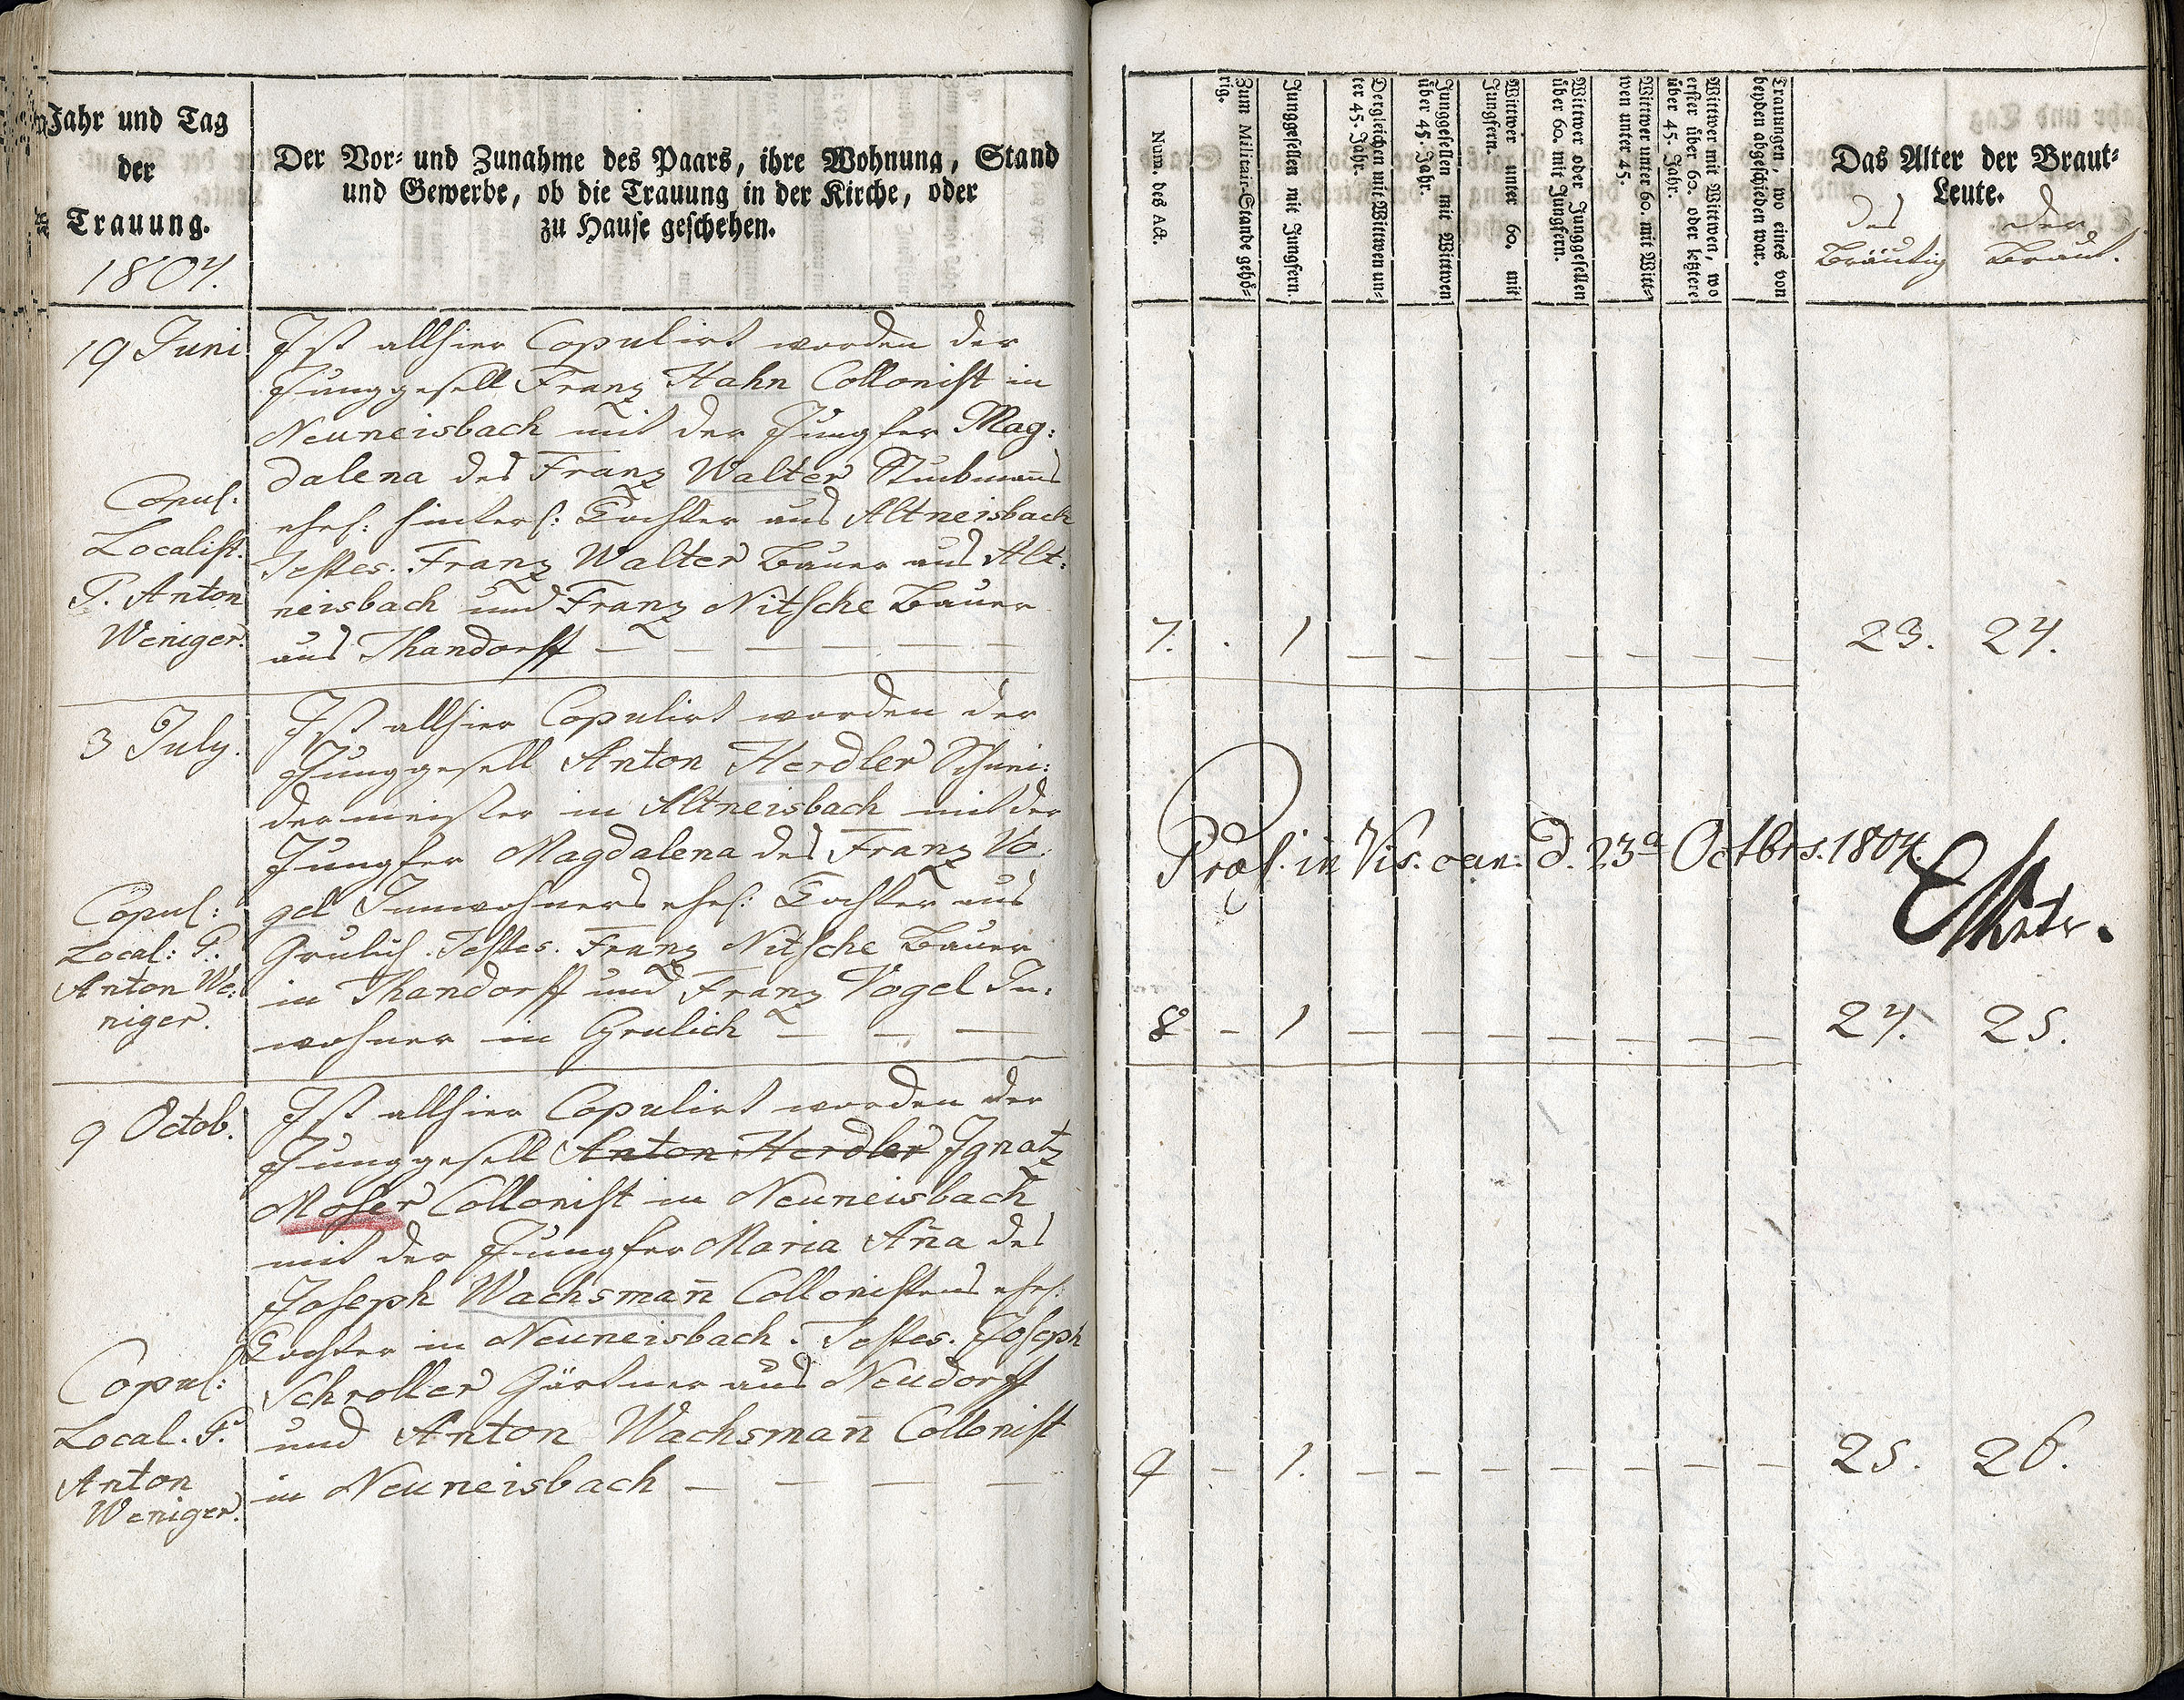 Jahr und Tag
der
Trauung.
1804.
Der Vor- und Zunahme des Paars, ihre Wohnung, Stand
und Gewerbe, ob die Trauung in der Kirche, oder
zu Hause geschehen.
19 Juni
Copul:
Localist.
P. Anton
Weniger.
Ist allhier Copulirt worden der
Junggesell Franz Hahn Collonist in
Neuneisbach mit der Jungfer Mag:
dalena des Franz Walter
ehel: hinterl: Tochter aus Altneisbach
Testes. Franz Walter Bauer aus Alt:
neisbach und Franz Nitsche Bauer
aus Thandorff
3 July.
Copul:
Local: P.
Anton We:
niger.
Ist allhier Copulirt worden der
Junggesell Anton Herdler Schnei:
dermeister in Altneisbach mit der
Jungfer Magdalena des Franz Vo:
gel Innwohners ehel: Tochter aus
Grulich. Testes. Franz Nitsche Bauer
in Thandorff und Franz Vogel In:
wohner in Grulich
9 Octob.
Copul:
Local. P.
Anton
Weniger.
Ist allhier Copulirt worden der
Junggesell Anton Herdler Ignatz
Moser Collonist in Neuneisbach
mit der Jungfer Maria Ana des
Joseph Wachsmañ Collonistens ehel:
Tochter in Neuneisbach. Testes. Joseph
Schroller Gärtner aus Neudorff
und Anton Wachsmañ Collonist
in Neuneisbach
Num. des Act.
Zum Militair-Stande gehö-
rig.
Junggesellen mit Jungfern.
Dergleichen mit Wittwen un-
ter 45. Jahr.
Junggesellen mit Wittwen
über 45. Jahr.
Wittwer unter 60. mit
Jungfern.
Wittwer oder Junggesellen
über 60. mit Jungfern.
Wittwer unter 60. mit Witt-
wen unter 45.
Wittwer mit Wittwen, wo
erster über 60. oder letztere
über 45. Jahr.
Trauungen, wo eines von
beyden abgeschieden war.
Das Alter der Braut-
Leute.
des der
Bräutig Braut.
7. 1 23. 24.
in Vis. can. d. 23a Octbrs. 1804.
8 1 24. 25.
9 1. 25. 26.